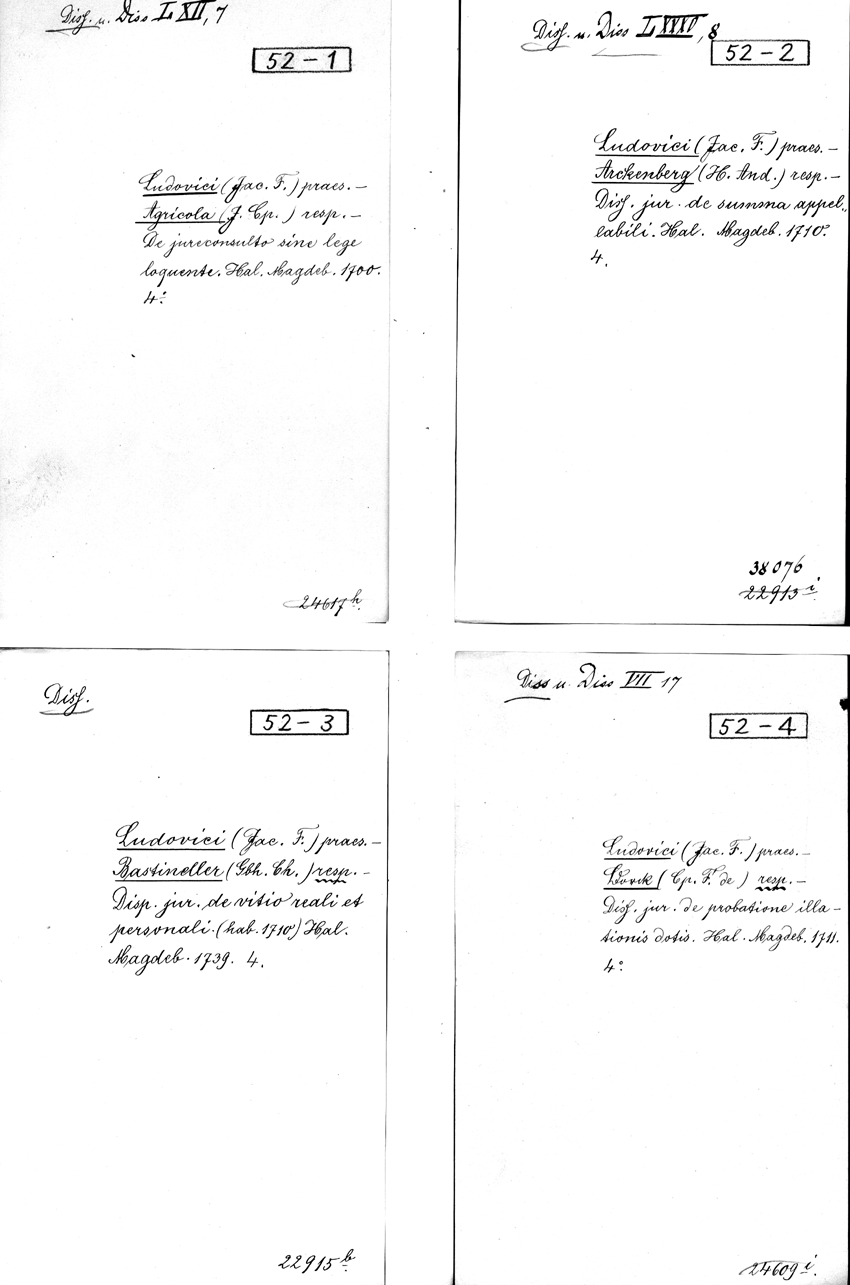 Diss. u. Diss LXII, 7
52-1
Ludovici (Jac. F.) praes. –
Agricola (J. Cp.) resp. –
De jureconsulto sine lege
loquente. Hal. Magdeb. 1700.
4°
24617h.
Diss. u. Diss LXXXV, 8
52-2
Ludovici (Jac. F.) praes. –
Arckenberg (H. And.) resp. –
Diss. jur. de summa appel„
labili. Hal. Magdeb. 1710.
4.
38076
22915i
Diss.
52-3
Ludovici (Jac. F.) praes. –
Bastineller (Gbh. Ch.) resp. –
Disp. jur. de vitio reali et
personali. (hab. 1710) Hal.
Magdeb. 1739. 4.
22915b
Diss u. Diss VII 17
52-4
Ludovici (Jac. F.) praes. –
(Cp. F. de) resp. –
Diss. jur. de probatione illa–
tionis dotis. Hal. Magdeb. 1711.
4°
24609i.